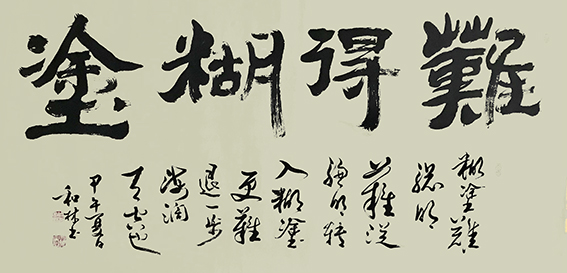 難得糊塗
糊塗難
聰明
難從
聰明转
入糊塗
更難
退一步
海闊
天空
甲午夏日
和林書